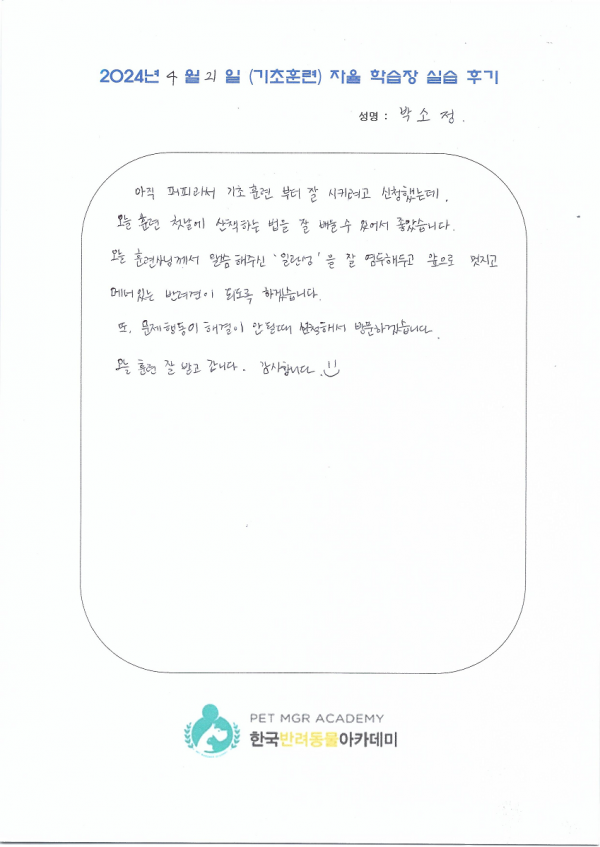 2024년 4 월 21 일 (기초훈련) 자율 학습장 실습 후기
성명 : 박소정.
아직 퍼피라서 기초훈련 부터 잘 시키려고 신청했는데,
오늘 훈련 첫날에 산책하는 법을 잘 배울 수 있어서 좋았습니다.
오늘 훈련사님께서 말씀해주신 '일관성'을 잘 염두해두고 앞으로 멋지고
매너있는 반려견이 되도록 하겠습니다.
또, 문제행동이 해결이 안될때 신청해서 방문하겠습니다.
오늘 훈련 잘 받고 갑니다. 감사합니다. :)
PET MGR ACADEMY
한국반려동물아카데미